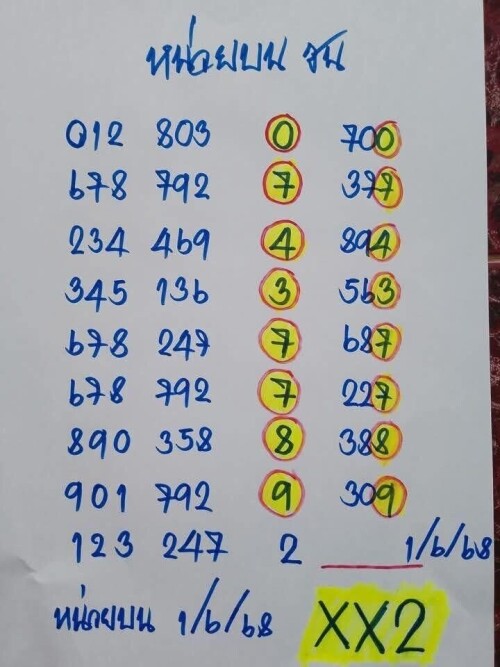 หน่วยบน จน
012 803 0 700
678 792 7 377
234 469 4 894
345 136 3 563
678 247 7 687
678 792 7 227
890 358 8 388
901 792 9 309
123 247 2 1/6/68
หน่วยบน 1/6/68 XX2